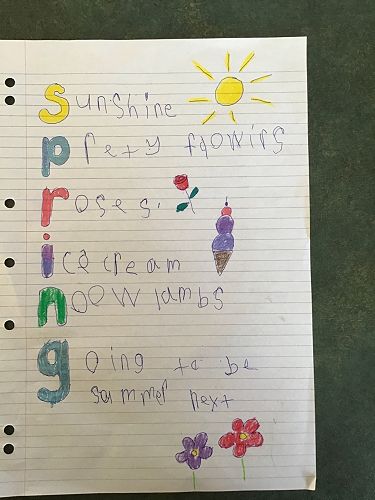 sunshine
prety flowirs
roses.
ice cream
noow lambs
going to be
summer next